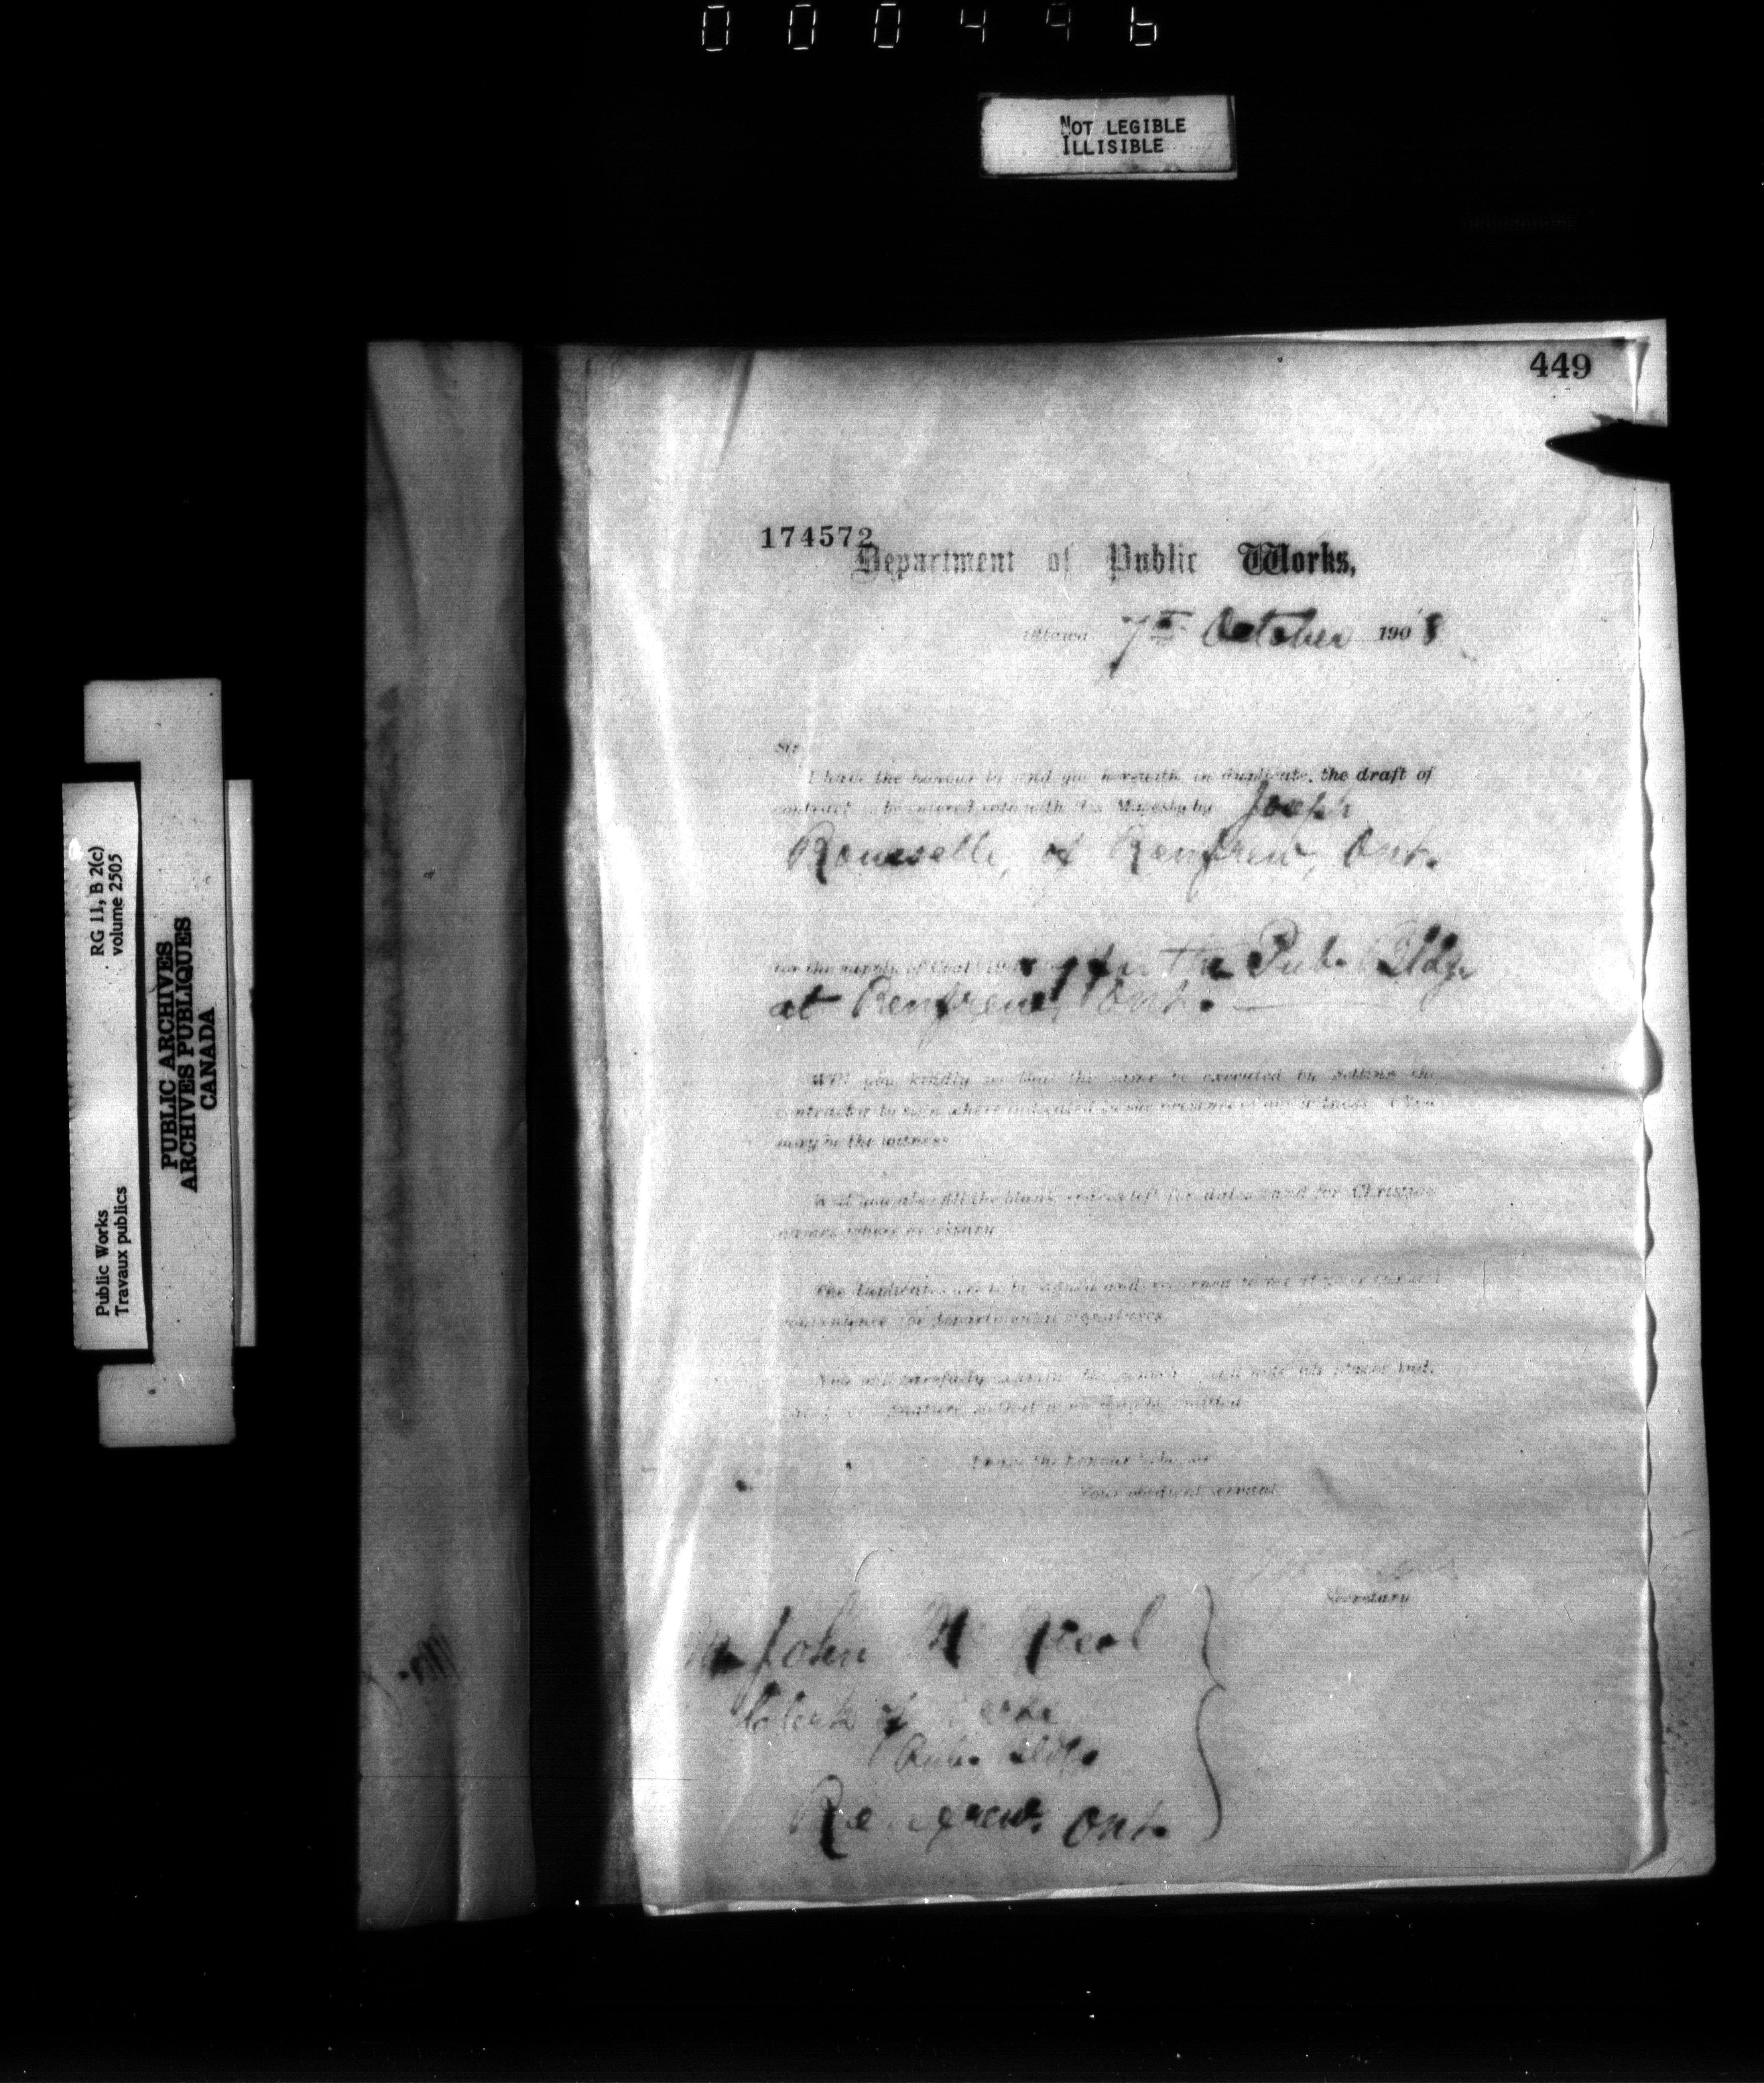 000496
NOT LEGIBLE
ILLISIBLE
449
174572
Department of Public Works,
Ottawa 7th October 1908
Sir,
I have the honour to send you herewith, in duplicate, the draft of
contract to be entered into with His Majesty by Joseph
Rousselle, of Renfrew, Ont.
for the supply of Coal for the Pub. Bldg.
at Renfrew, Ont.
Will you kindly see that the same be executed by getting the
contractor to sign where indicated in the presence of a witness. You
may be the witness
Will you also fill the blank spaces left for dates and for Christian
names where necessary
The duplicates are to be signed and returned to me at your earliest
convenience for departmental signatures
You will carefully examine the
signature
I have the honour to be, Sir
Your obedient servant
Secretary
Mr John Mc
Clerk of Works
Pub. Bldg.
Renfrew. Ont.
Mr.
RG 11, B 2(c)
volume 2505
Public Works
Travaux publics
PUBLIC ARCHIVES
ARCHIVES PUBLIQUES
CANADA